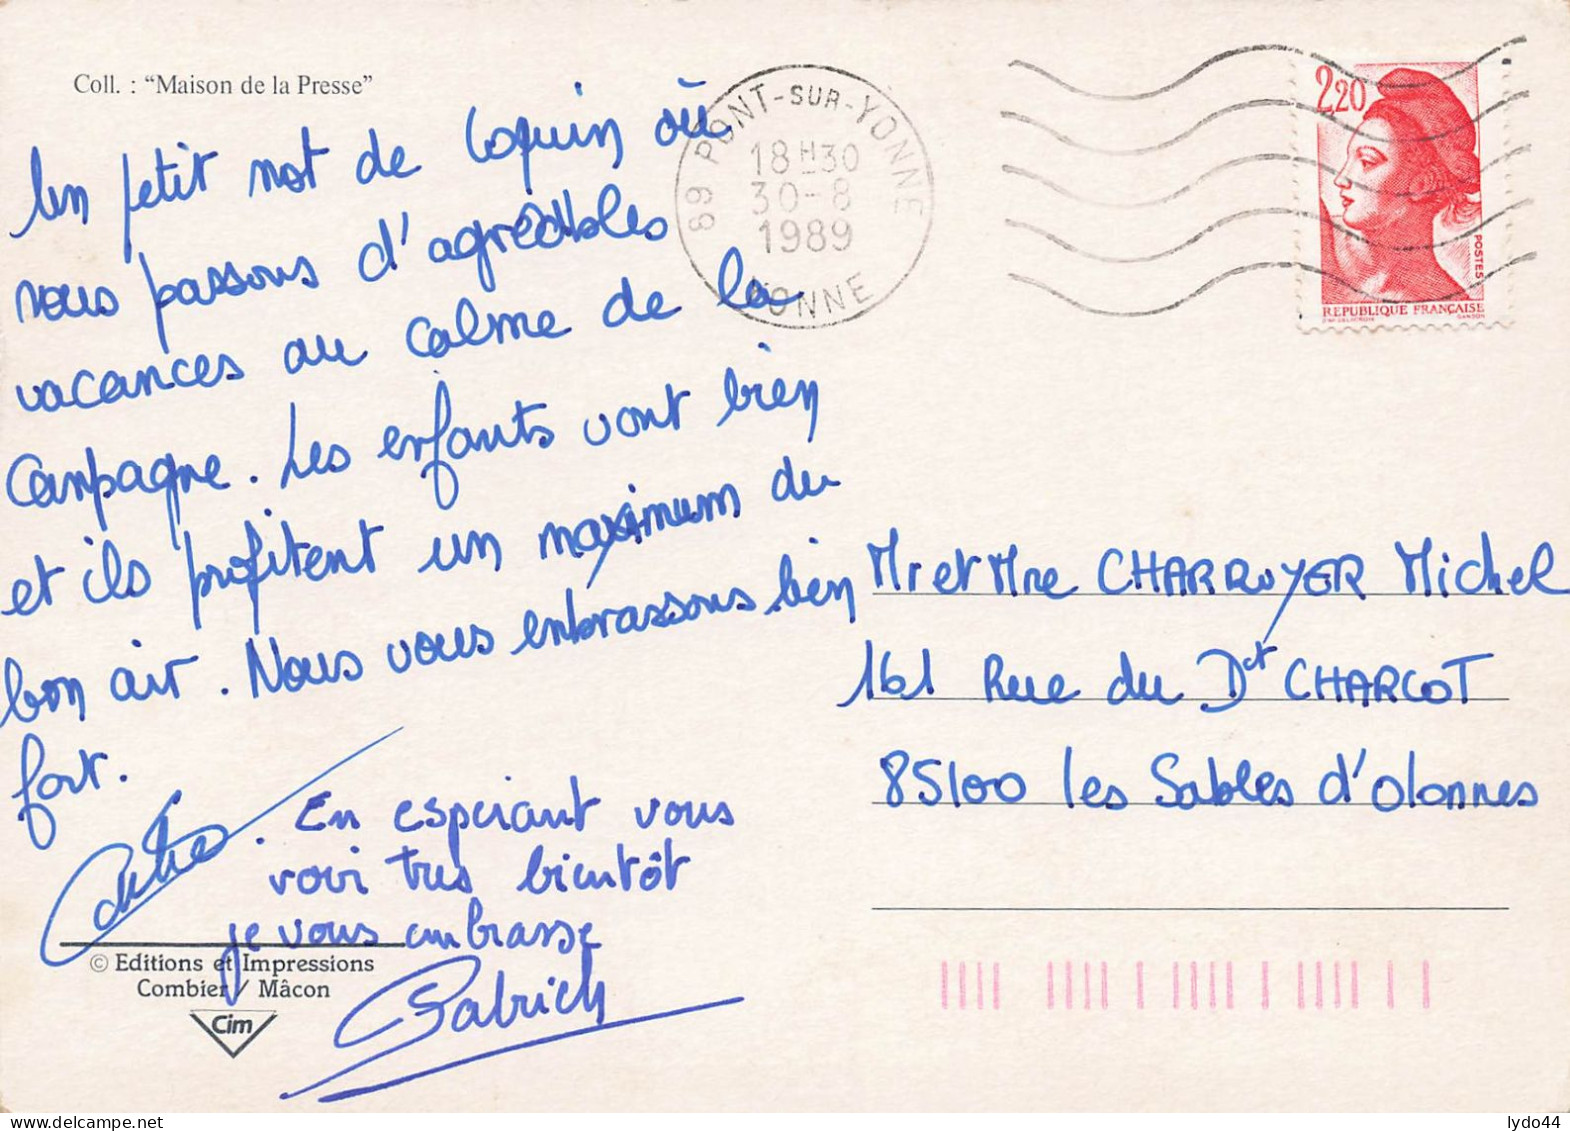 Coll. : “Maison de la Presse”
Un petit mot de Copuin où
nous passons d'agréables
vacances au calme de la
campagne. Les enfants vont bien
et ils profitent un maximum du
bon air. Nous vous embrassons bien
fort.
. En espérant vous
voir très bientôt
je vous embrasse
© Editions et Impressions
Combier / Mâcon
Cim
89 PONT-SUR-YONNE
18H30
30-8
1989
YONNE
2,20
POSTES
REPUBLIQUE FRANÇAISE
Mr et Mme CHARRUYER Michel
161 Rue du Dct CHARCOT
85100 les Sables d'olonnes
lydo44